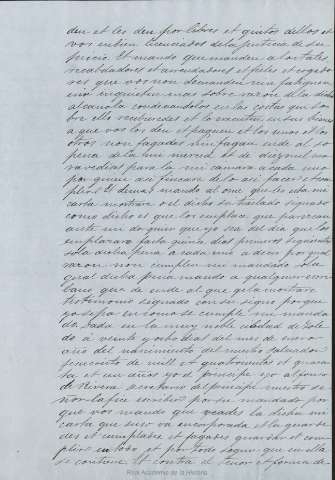 den et les den por libres et quitos dellos et
vos enbien licenciados de la justicia de su
juicio Et mando que manden a los tales
recabdadores et arrendadores et fieles et cogedo
res que vos non demanden nin fatiguen
nin enquieten mas sobre razon dela dicha
alcavala condenandolos en las costas que so
bre ello
a que vos los den et paguen et los unos et los
otros non fagades nin fagan ende al so
pena de la mi merced et de diez mill ma
ravedis para la mi camara a cada uno
por quien fincare de lo asi facer et com
plir Et demas mando al ome que les esta mi
carta mostrare o el dicho su traslado signado
como dicho es que los emplace que parescan
ante mi do quier que yo sea del dia que los
emplazare fasta quince dias primeros siguientes
so la dicha pena a cada uno a decir por qual
razon non cumplen mi mandado so la
qual dicha pena mando a qualquier escri
bano que de ende al que gela mostrare
testimonio signado con su signo porque
yo sepa en como se cumple mi manda
do. Dada en la muy noble cibdad de Tole
do á veinte y ocho dias del mes de enero
año del nascimiento del nuestro salvador
Jesucristo de mill et quatrocientos et quaren
ta et un años yo el principe yo Alfonso
de Rivera secretario del principe nuestro se
ñor la fice escribir por su mandado por
que vos mando que veades la dicha mi
carta que suso va encorporada et la guarde
des et cumplades et fagades guardar et com
plir en todo et por todo segun que en ella
se contiene Et contra el tenor et forma de
Real Academia de la Historia